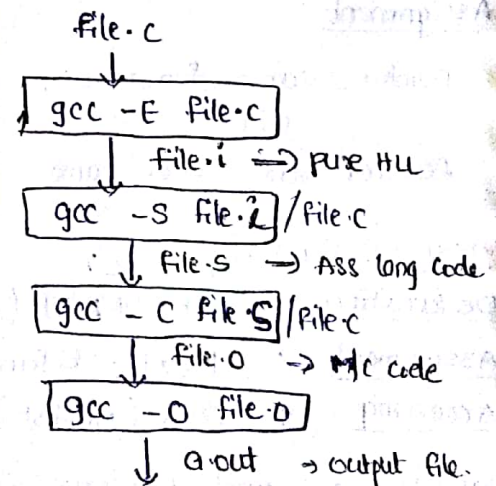 file.c
gcc -E file.c
file.i => pure HLL
gcc -S file.i /file.c
file.s -> Ass lang code
gcc -C file.S /file.c
file.o -> M/C code
gcc -O file.o
a.out -> output file.